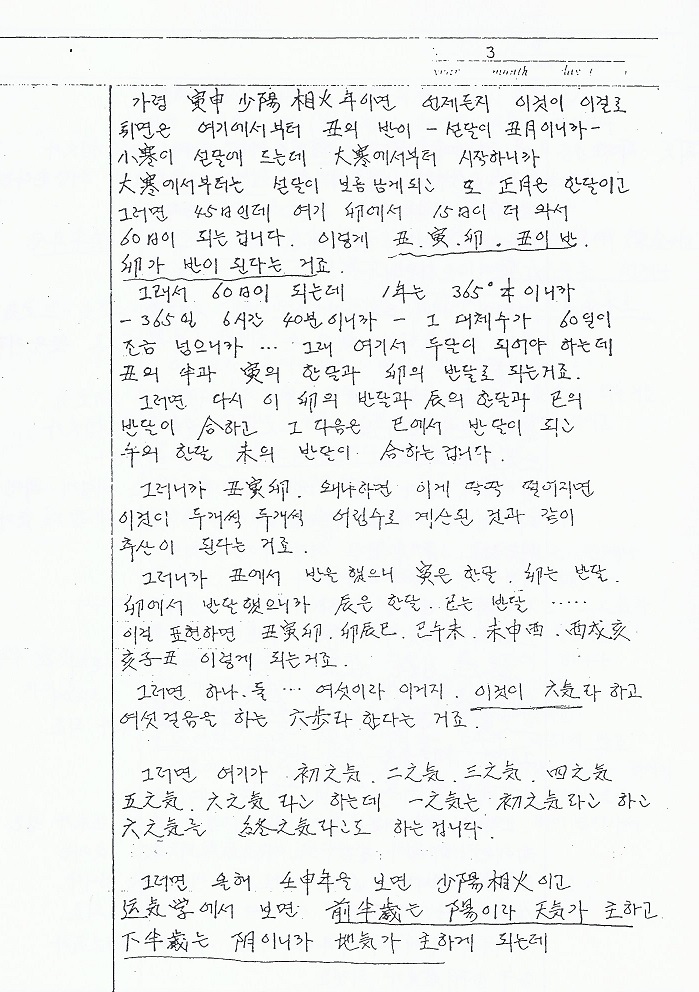 3
year month day
가령 寅申 少陽 相火 年이면 언제든지 이것이 이걸로
되면은 여기에서부터 丑의 반이 - 섣달이 丑月이니까 -
小寒이 섣달에 드는데 大寒에서부터 시작하니까
大寒에서부터는 섣달이 보름 남게되고 또 正月은 한달이고
그러면 45日인데 여기 卯에서 15日이 더 와서
60日이 되는 겁니다. 이렇게 丑.寅.卯. 丑이 반.
卯가 반이 된다는 거죠.
그래서 60日이 되는데 1年는 365°¼이니까
- 365일 6시간 40분이니까 - 그 대체수가 60일이
조금 넘으니까 … 그래 여기서 두달이 되어야 하는데
丑의 半과 寅의 한달과 卯의 반달로 되는거죠.
그러면 다시 이 卯의 반달과 辰의 한달과 巳의
반달이 合하고 그 다음은 巳에서 반달이 되고
午의 한달 未의 반달이 合하는 겁니다.
그러니까 丑寅卯. 왜냐하면 이게 딱딱 떨어지면
이것이 두개씩 두개씩 어림수로 계산된 것과 같이
추산이 된다는 거죠.
그러니까 丑에서 반을 했으니 寅은 한달. 卯는 반달.
卯에서 반달했으니까 辰은 한달. 巳는 반달 .....
이걸 표현하면 丑寅卯. 卯辰巳. 巳午未. 未申酉. 酉戌亥
亥子丑 이렇게 되는거죠.
그러면 하나. 둘 … 여섯이라 이거지. 이것이 六気라 하고
여섯 걸음을 하는 六步라 한다는 거죠.
그러면 여기가 初之気. 二之気. 三之気. 四之気
五之気. 六之気 라고 하는데 一之気는 初之気라고 하고
六之気를 終之気라고도 하는 겁니다.
그러면 올해 壬申年을 보면 少陽相火이고
运気学에서 보면 前半歲는 陽이라 天気가 主하고
下半歲는 阴이니까 地気가 主하게 되는데